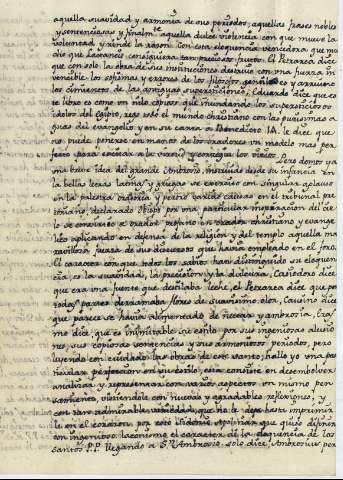 aquella suavidad y armonia de sus periodos; aquellas frases nobles
y sentenciosas y finalm.te aquella dulce violencia con que mueve la
voluntad y rinde la razon. Con esta eloquencia vencedora que no
dice que Lactancio consiguiera tan precioso fruto. El Petrarca dice
que con solo la obra de sus instituciones destruio con una fuerza in
vencible los sofismas y errores de los filosofos gentiles y arranco
los cimientos de las antiguas supersticiones; Eduardo dice que es
te libro es como un nilo copioso que inundando los supersticiosos
idolos del Egipto, rego todo el mundo christiano con las purisimas a
guas del evangelio y en su carta a Benedicto IA. le dice que
no puede ponerse en manos de los oradores un modelo mas per
fecto para excitar a la virtud y corregir los vicios.
Pero demos ya
una breve idea del grande Ambrosio, instruido desde su infancia en
las bellas letras latinas y griegas se exercito con singular aplauso
en la palestra oratoria y peroro varias causas en el tribunal pre
toriano, declarado Obispo por una particular inspiracion del cie
lo se convirtio de orador profano en orador christiano y evange
lico aplicando en defensa de la religion y del templo aquella ma
ravillosa fuerza de sus discursos que havia empleado en el foro.
El caracter con que todos los sabios han distinguido su eloquen
cia es la suavidad, la precision y la dulzura; Casiodoro dice
que era una fuente que destilaba leche, el Petrarca dice que por
todas partes derramaba flores de suavisimo olor, Causino dice
que parece se havia alimentado de nectar y ambrosia, Eras
mo dice, que es inimitable su estilo por sus ingeniosas alusio
nes, sus copiosas sentencias y sus armoniosos periodos, pero
leyendo con cuidado las obras de este santo, hallo yo una par
ticular perfeccion en su estilo, esta consiste en desembolver
analizar y representar con varios aspectos un mismo pen
samiento, vistiendole con nuevas y agradables reflexiones, y
con tan admirable variedad que no le deja hasta imprimir
le en el corazon, por esto Sidonio Apolinar que quiso difinir
con ingenioso laconismo el caracter de la eloquencia de los
santos P.P. llegando a S.n Ambrosio solo dice, Ambrosius per